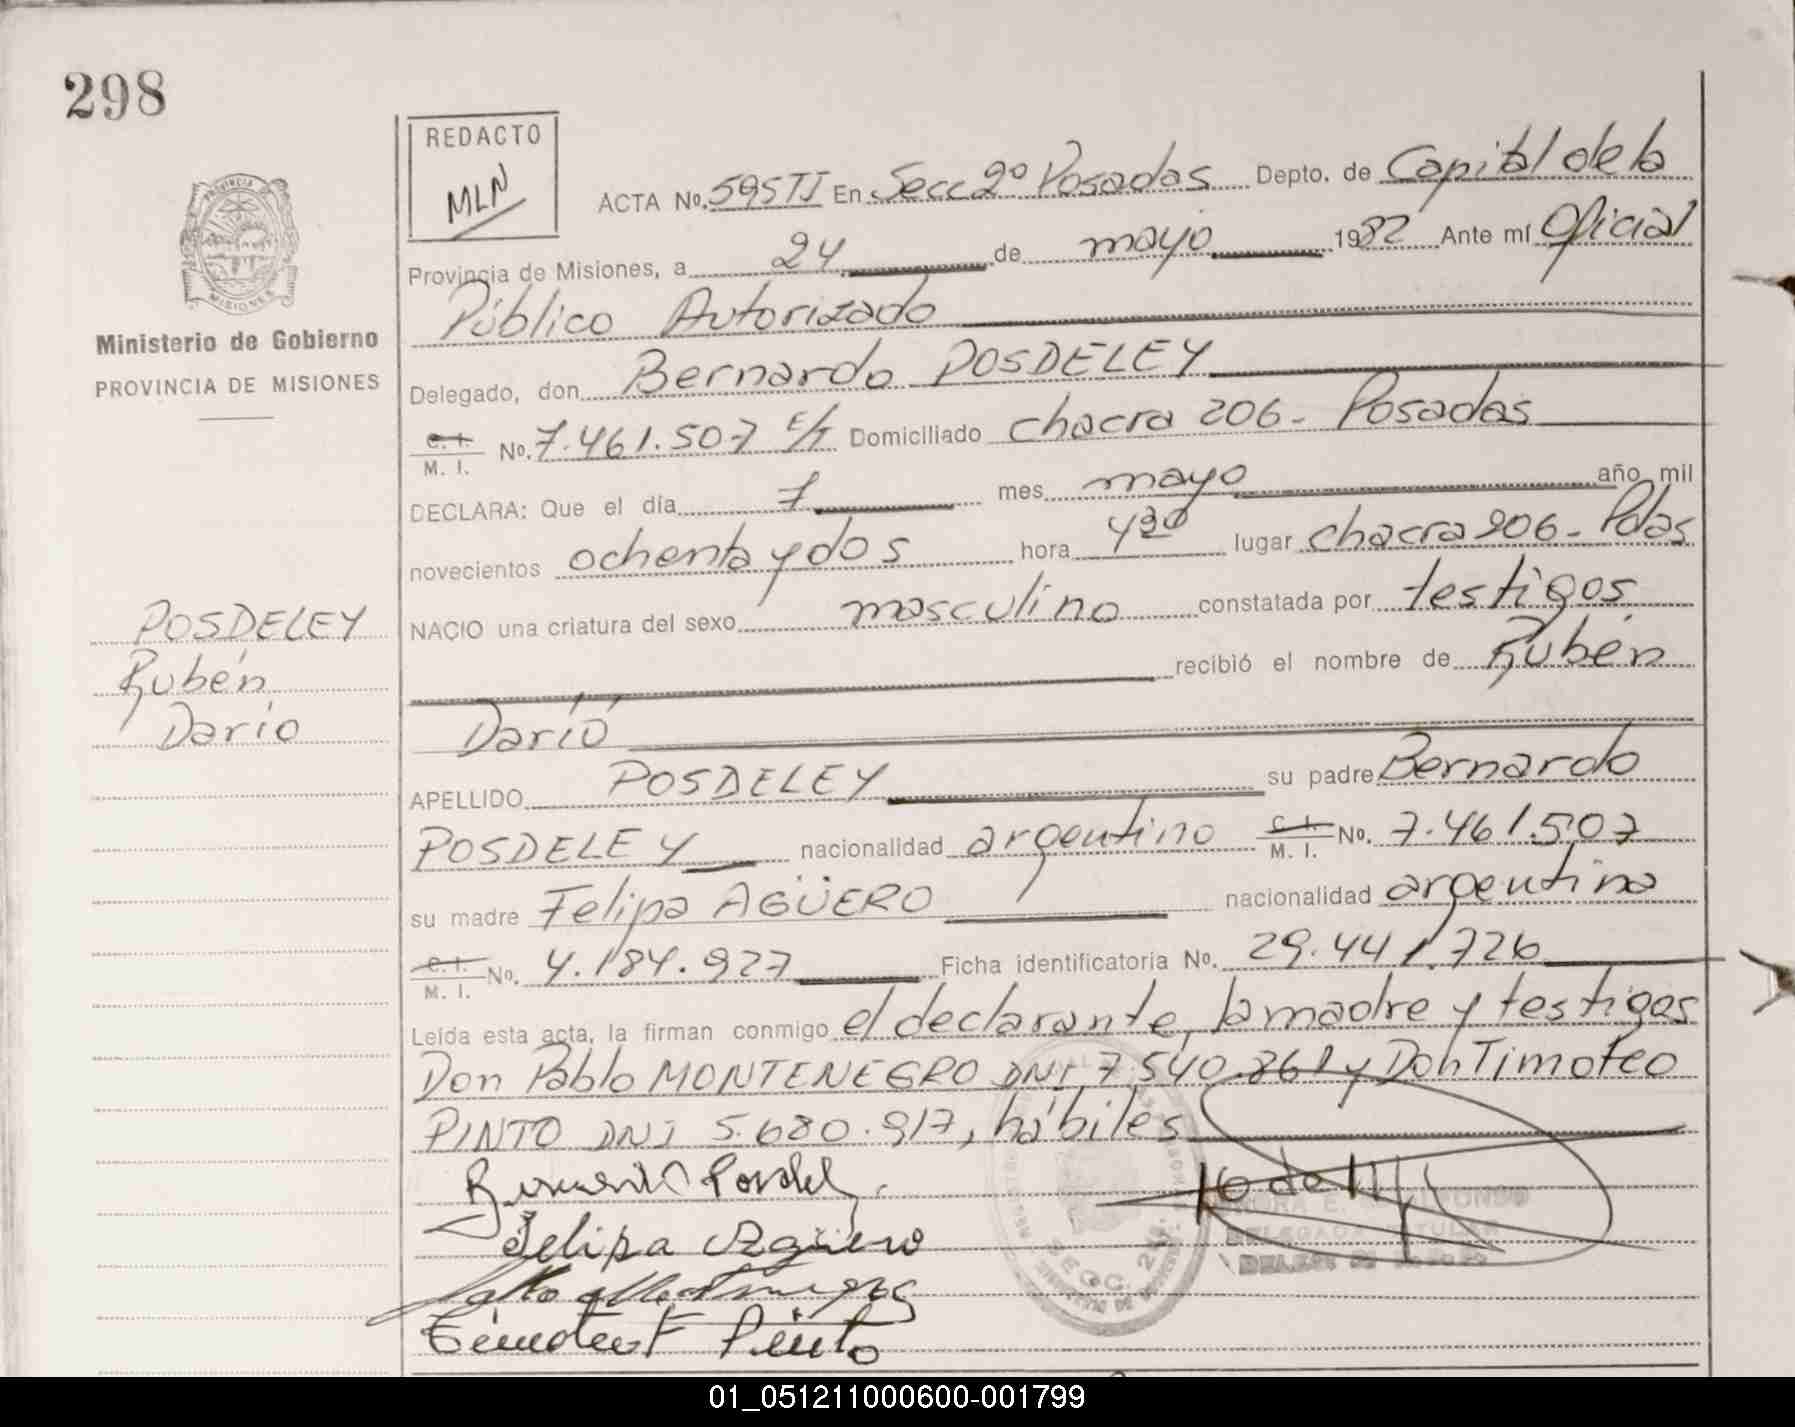 298
REDACTO
MLN
ACTA No. 595TI En Secc 2º Posadas Depto. de Capital de la
Provincia de Misiones, a 24 de mayo 1982 Ante mí Oficial
Público Autorizado
Ministerio de Gobierno
PROVINCIA DE MISIONES
Delegado, don Bernardo POSDELEY
C. I.
M. I. No. 7.461.507 Domiciliado chacra 206 - Posadas
DECLARA: Que el día 7 mes mayo año mil
novecientos ochenta y dos hora 4 30 lugar chacra 206 - Pdas
NACIO una criatura del sexo masculino constatada por testigos
recibió el nombre de Rubén
Darío
POSDELEY
Rubén
Darío
APELLIDO POSDELEY su padre Bernardo
POSDELEY nacionalidad argentino C. I. M. I. No. 7.461.507
su madre Felipa AGÜERO nacionalidad argentina
C. I. M. I. No. 4.184.927 Ficha identificatoria No. 29.441.726
Leída esta acta, la firman conmigo el declarante, la madre y testigos
Don Pablo MONTENEGRO DNI 7.540.861 y Don Timoteo
PINTO DNI 5.680.917, hábiles
Felipa Agüero
Pinto
SECC. 2da.
01_051211000600-001799